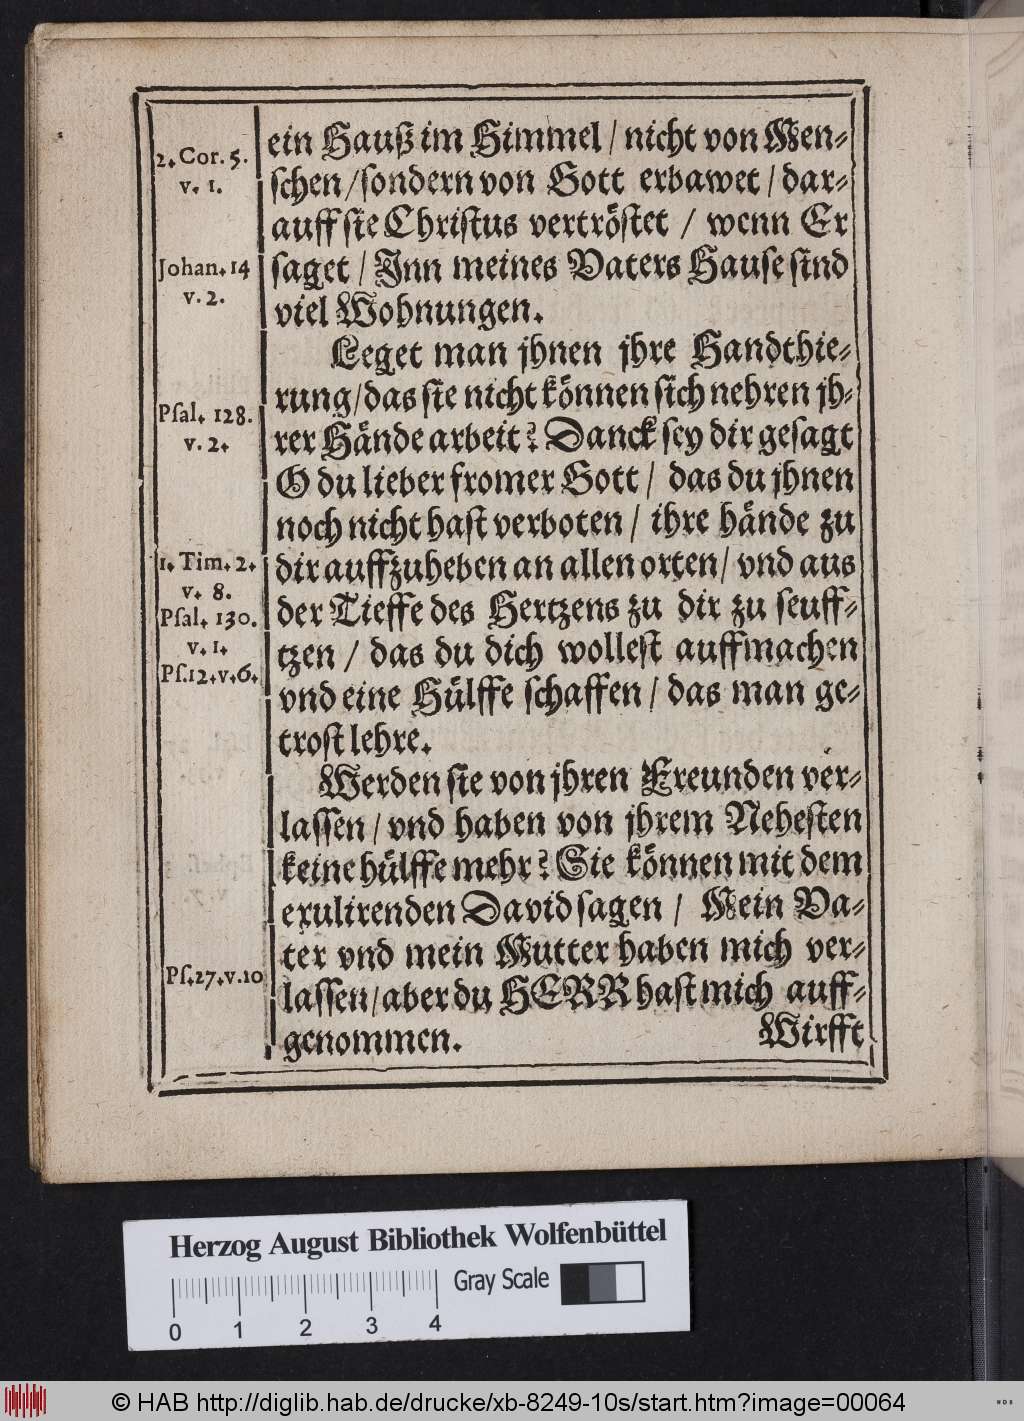 2. Cor. 5.
v. 1.
Johan. 14
v. 2.
Psal. 128.
v. 2.
1. Tim. 2.
v. 8.
Psal. 130.
v. 1.
Ps. 12. v. 6.
Ps. 27. v. 10
ein Hauß im Himmel / nicht von Men-
schen / sondern von Gott erbawet / dar-
auff sie Christus vertröstet / wenn Er
saget / Inn meines Vaters Hause sind
viel Wohnungen.
Leget man jhnen jhre Handthie-
rung / das sie nicht können sich nehren jh-
rer Hände arbeit? Danck sey dir gesagt
O du lieber fromer Gott / das du jhnen
noch nicht hast verboten / ihre hände zu
dir auffzuheben an allen orten / vnd aus
der Tieffe des Hertzens zu dir zu seuff-
tzen / das du dich wollest auffmachen
vnd eine Hülffe schaffen / das man ge-
trost lehre.
Werden sie von jhren Freunden ver-
lassen / vnd haben von jhrem Nehesten
keine hülffe mehr? Sie können mit dem
exulirenden David sagen / Mein Va-
ter vnd mein Mutter haben mich ver-
lassen / aber du HERR hast mich auff-
genommen.
Wirfft
Herzog August Bibliothek Wolfenbüttel
Gray Scale
0 1 2 3 4
© HAB http://diglib.hab.de/drucke/xb-8249-10s/start.htm?image=00064